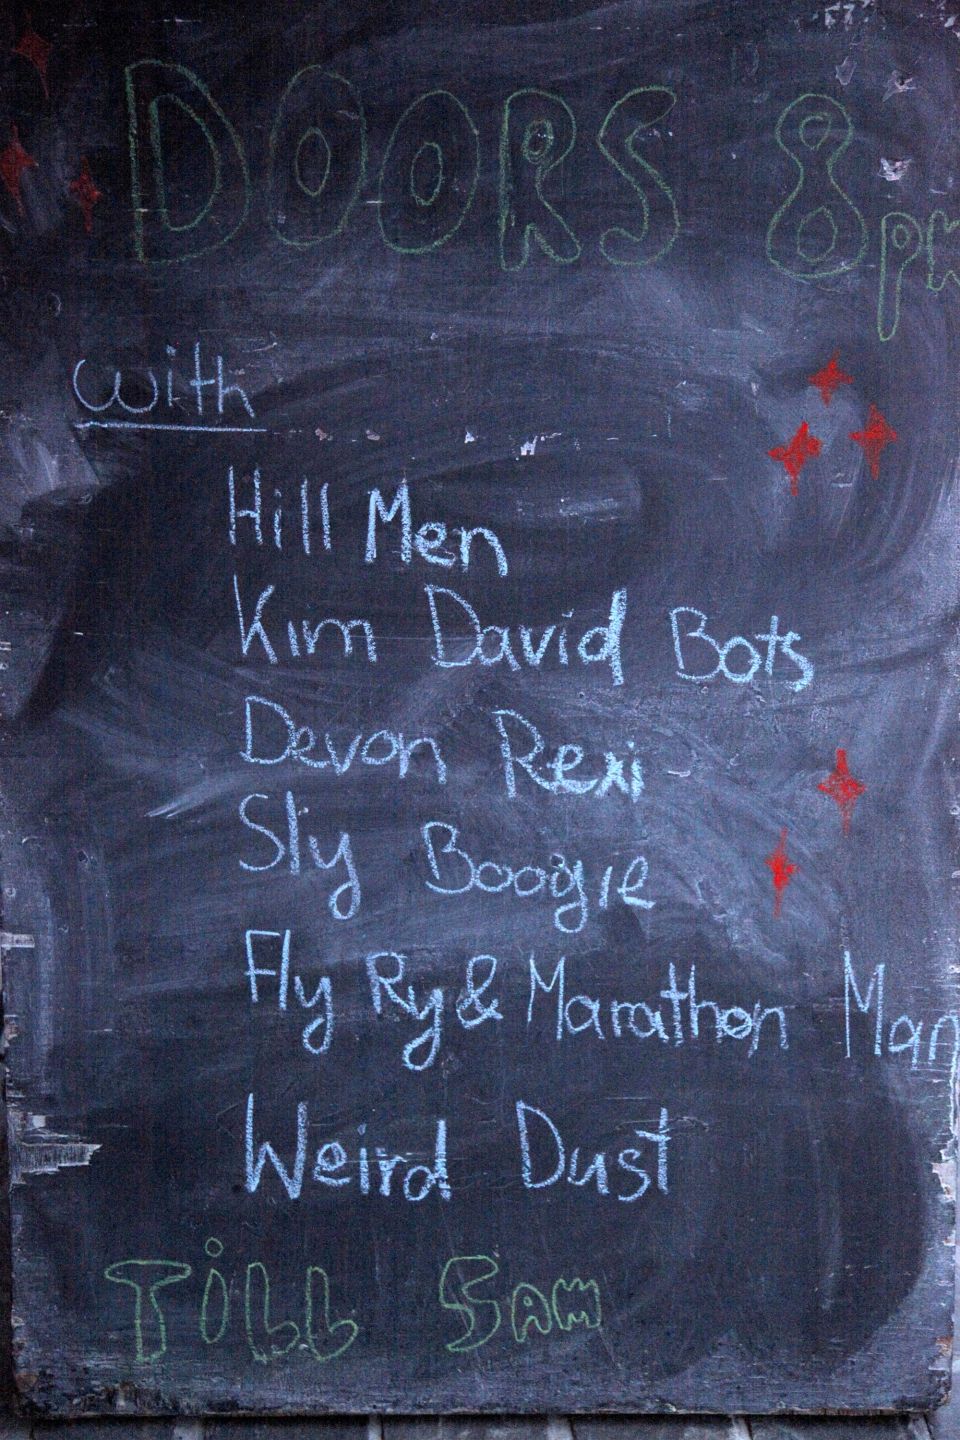 DOORS 8pm
with
Hill Men
Kim David Bots
Devon Rexi
Sly Boogie
Fly Ry & Marathon Man
Weird Dust
TiLL 5AM